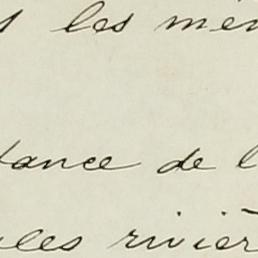 les mêm
tance de l
les rivièr